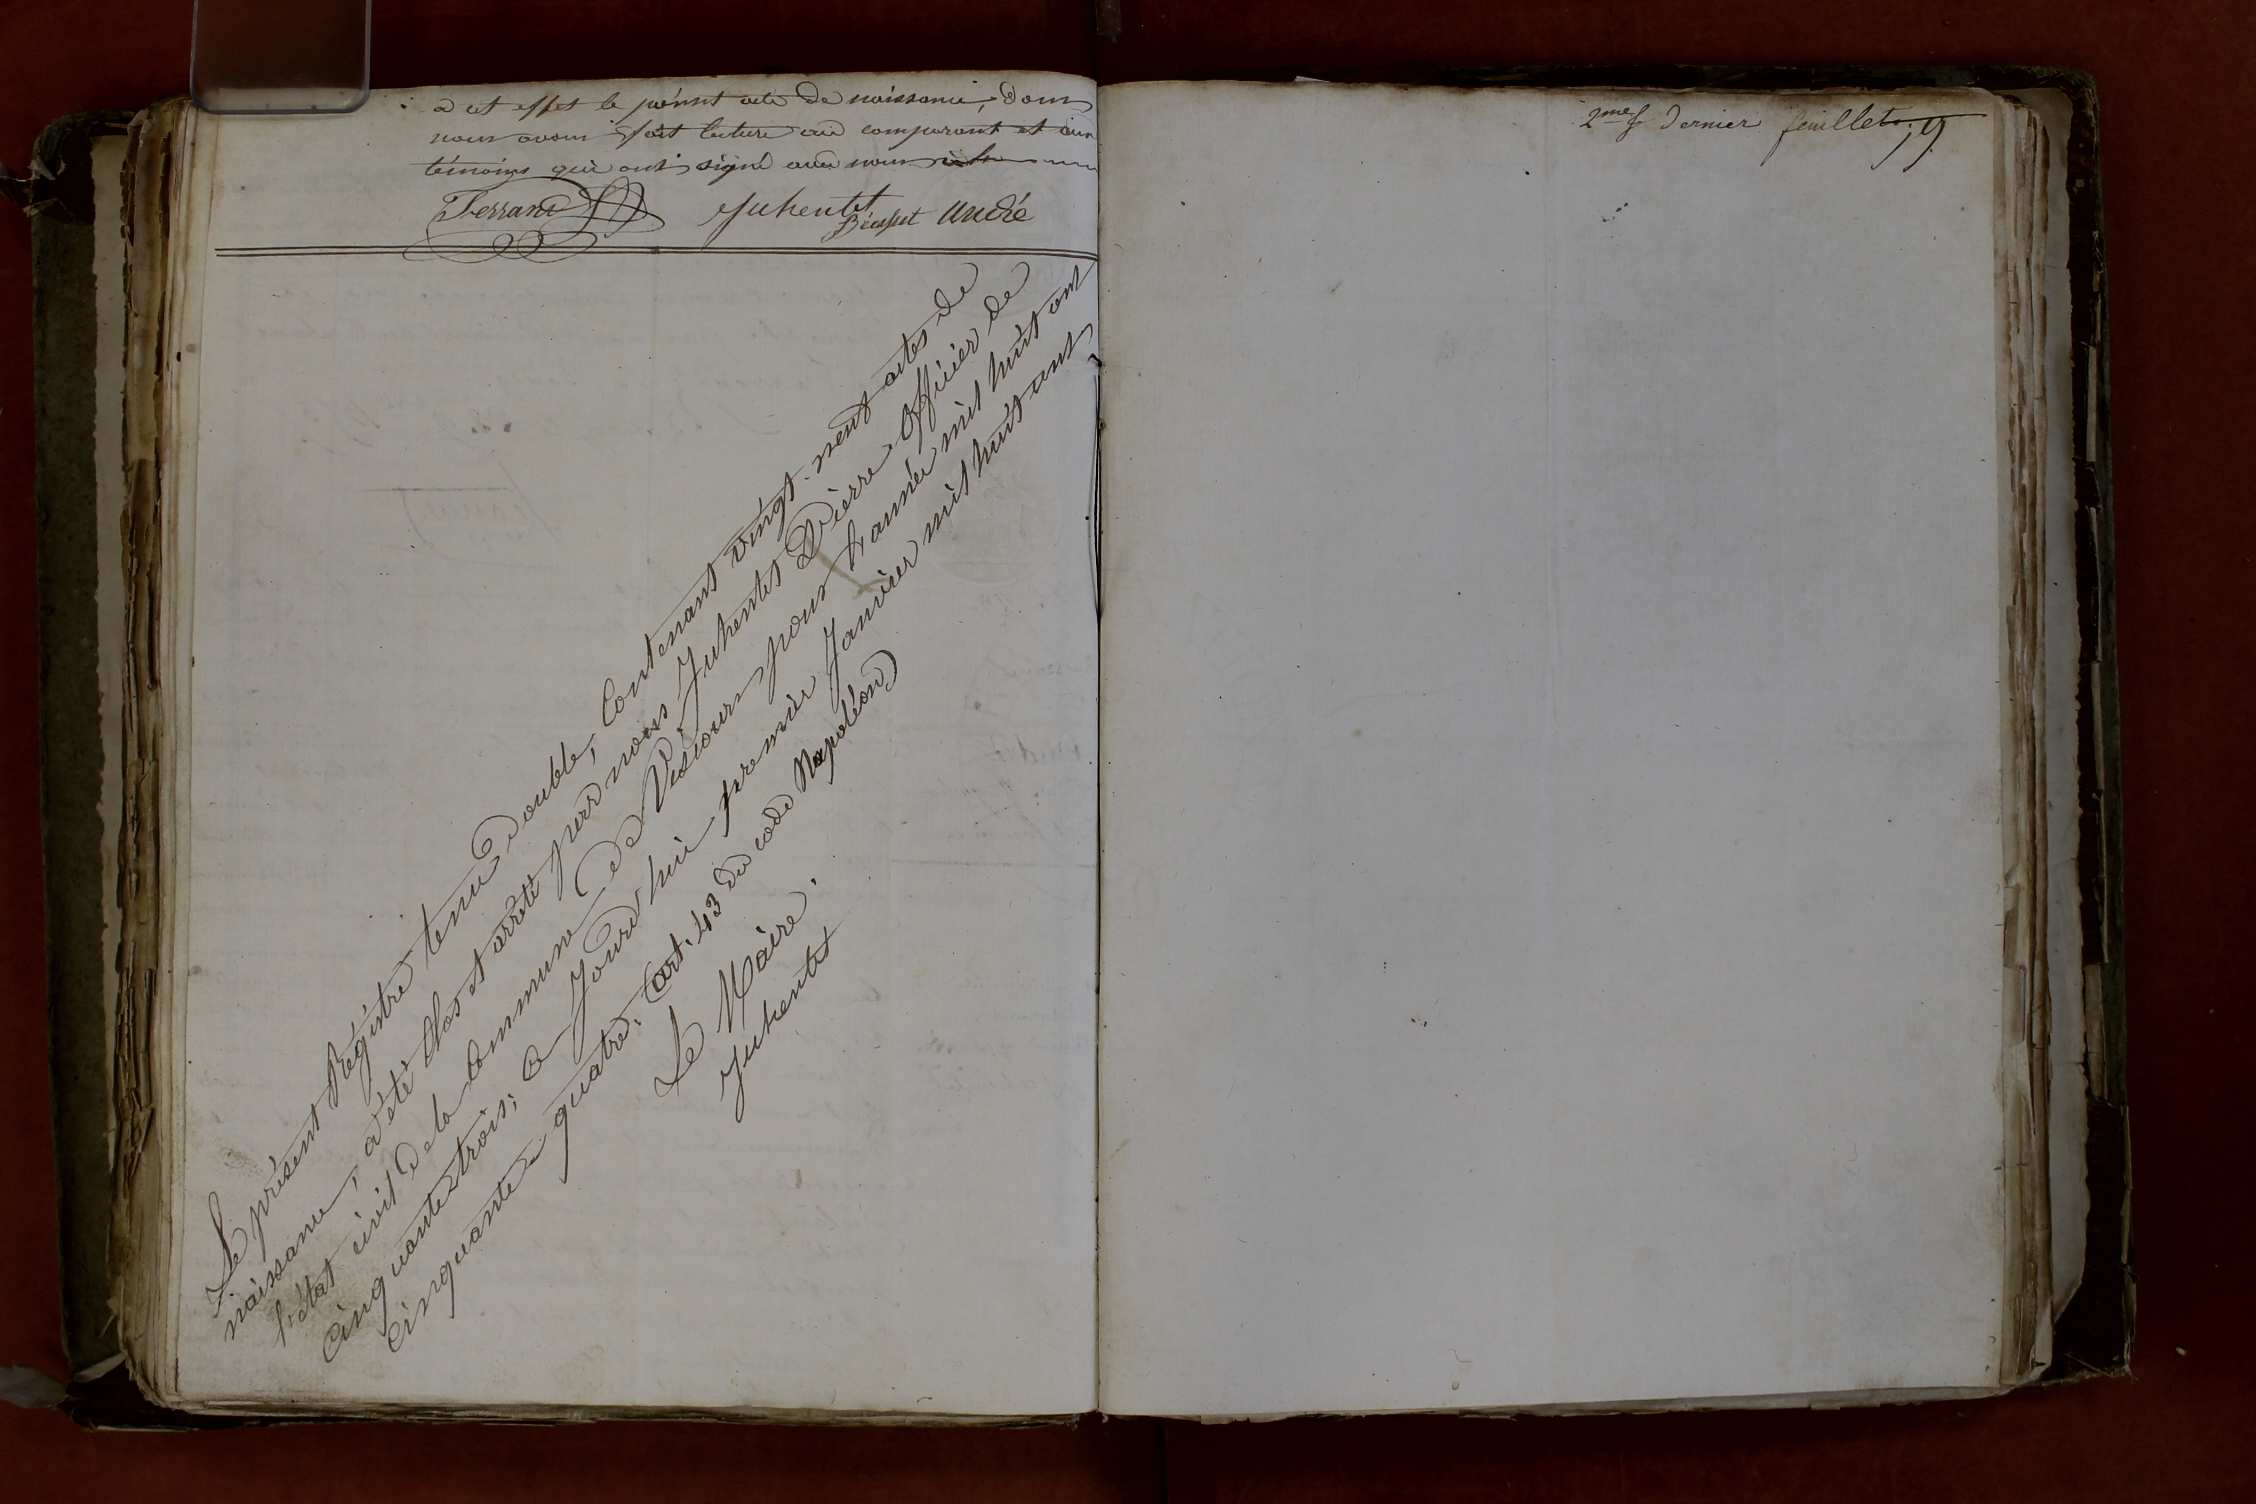 a cet effet le présent acte de naissance, dont
nous avons fait lecture au comparant et aux
témoins qui ont signé avec nous
Ferrand Juhentet Bécaput André
Le présent Régistre tenu Double, Contenant vingt-neuf actes de
naissance, a été Clos et arrêté par nous Juhentet Pierre Officier de
l'état civil de la Commune de Viscours pour l'année mil huit cent
cinquante trois; ce Jourd'hui premier Janvier mil huit cent
cinquante quatre. (art. 43 du code Napoléon)
Le Maire.
Juhentet
2me & Dernier feuillet.